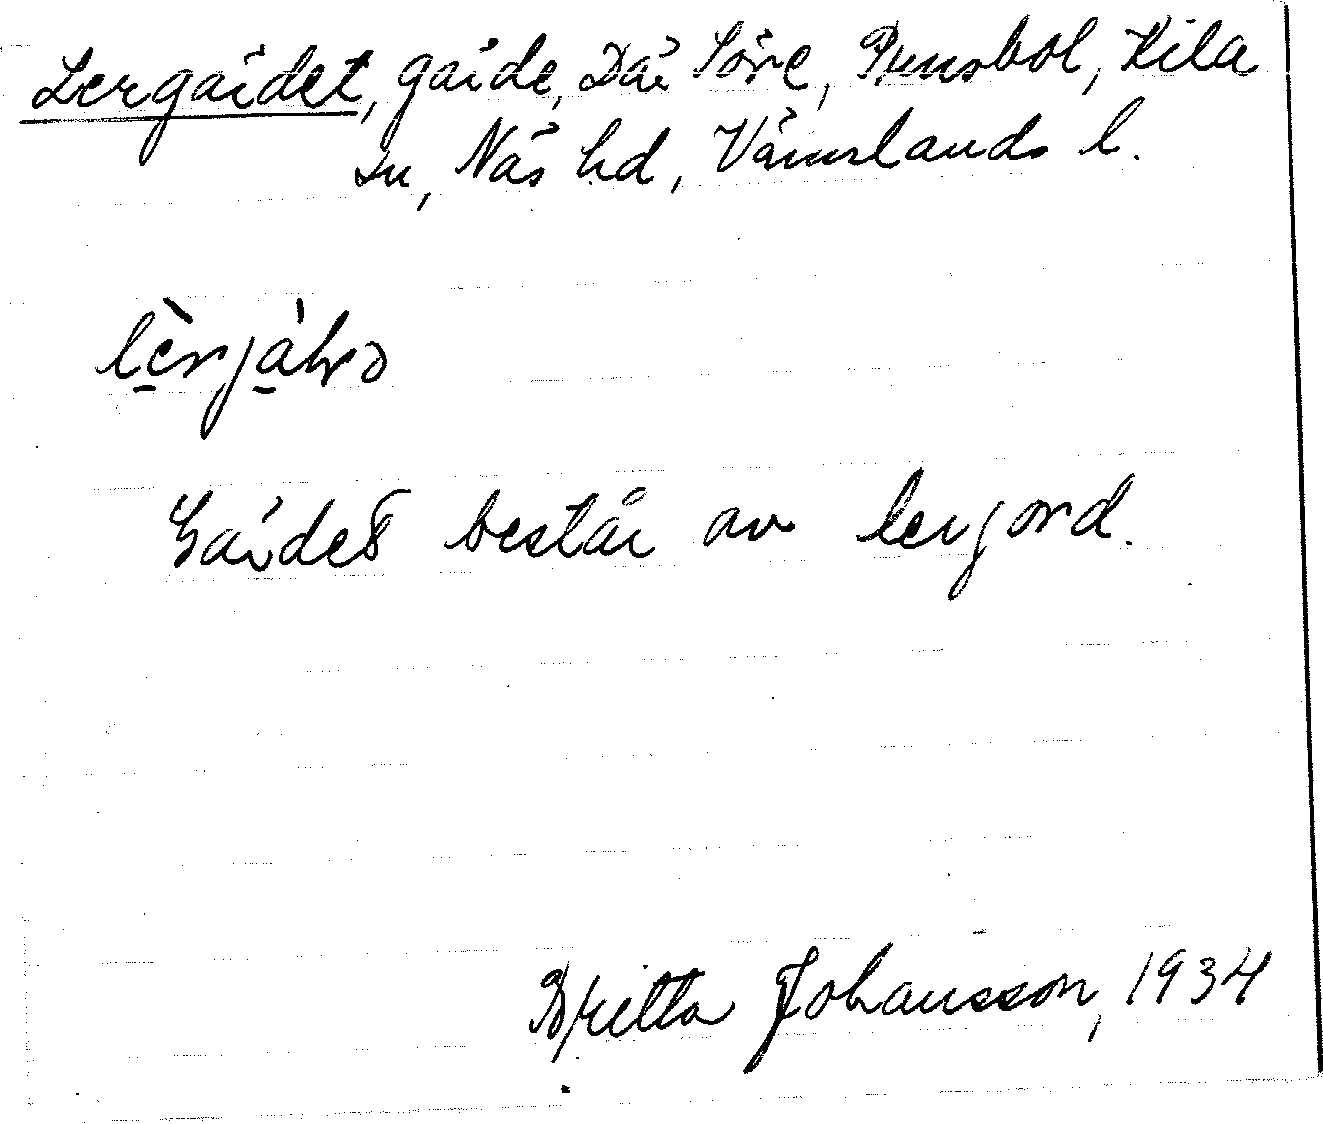 Lergärdet, gärde, Där Söre, Prensbol, Kila
sn, Näs hd, Värmlands l.
Gärdet består av lerjord.
Britta Johansson, 1934